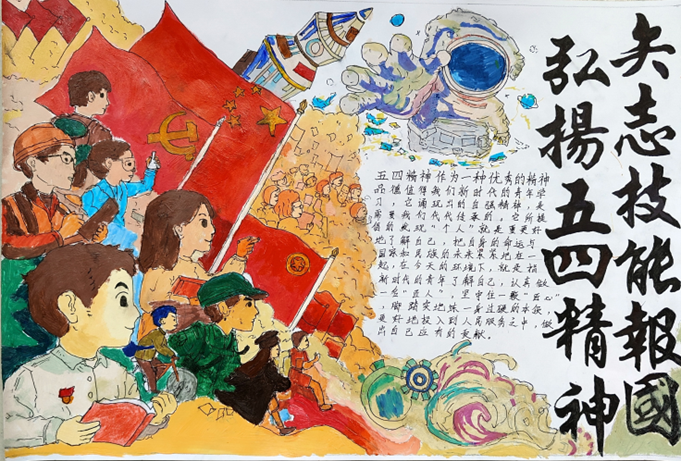 矢志技能報國
弘揚五四精神
五四精神作为一种优秀的精神
品德值得我们新时代的青年学
习，它涌现出的自强精神，是
需要我们代代传承的。它所提
倡的发现“个人”就是要更好
地了解自己，把自身的命运与
国家和民族的未来紧紧地在一
起，在今天的环境下，就是指
新时代的青年了解自己，认真做
一名“匠人”，坚守住一颗“匠心”
，脚踏实地练一身过硬的本领，
更好地投入到人民服务之中，做
出自己应有的贡献。